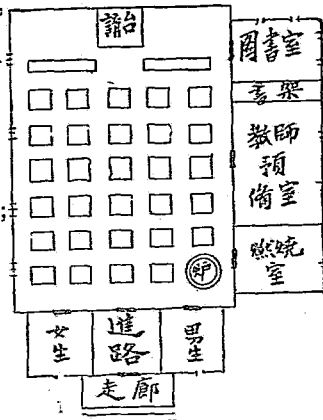 講台
図書室
書架
教師
預
備室
燃燒
室
炉
女
生
進
路
男
生
走廊